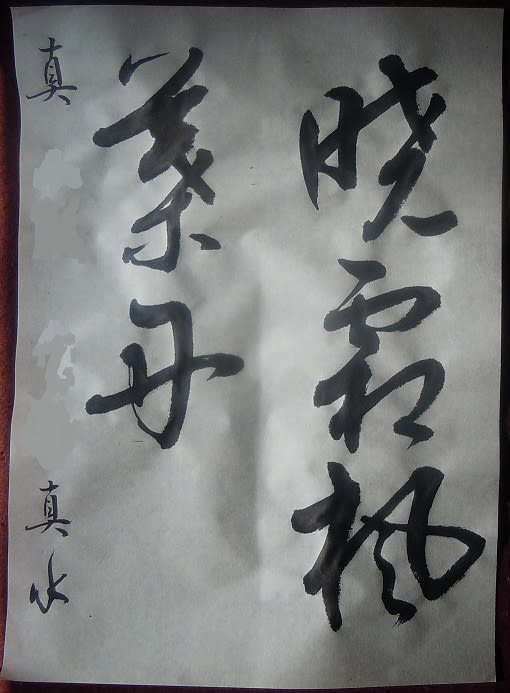 暁霜楓
葉丹
真 真水